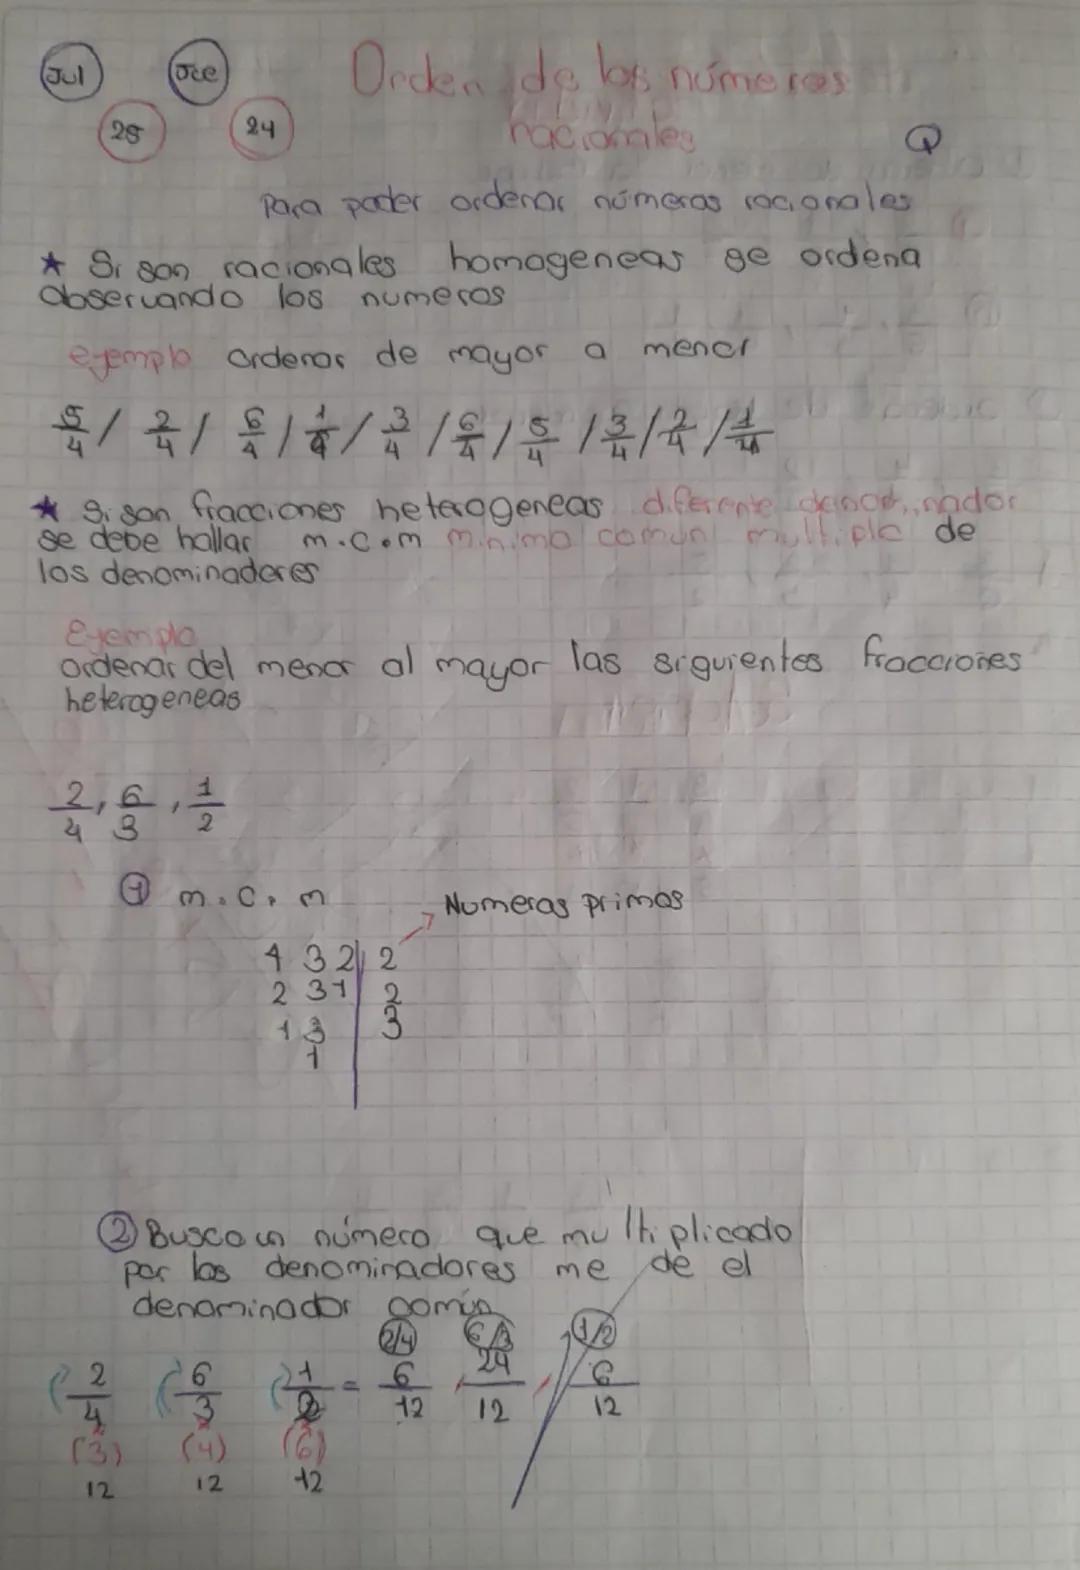 Jul Jue Orden de los números
25 24 racionales
Para poder ordenar números racionales
★ Si son racionales homogeneas se ordena
observando los numeros
ejemplo ordenar de mayor a menor
5/4 / 2/4 / 6/4 / 1/4 / 3/4 / 6/4 / 5/4 / 3/4 / 2/4 / 1/4
★ Si son fracciones heterogeneas diferente denominador
se debe hallar m.c.m minimo comun multiplo de
los denominadores
Ejemplo
ordenar del menor al mayor las siguientes fracciones
heterogeneas
2/4, 6/3, 1/2
① m.c.m
Numeros primos
4 3 2 | 2
2 3 1 | 2
1 3 | 3
1
② Busco un número que multiplicado
por los denominadores me de el
denominador común
2/4 6/3 1/2
2/4 6/3 1/2 = 6/12, 24/12, 6/12
(3) (4) (6)
12 12 12